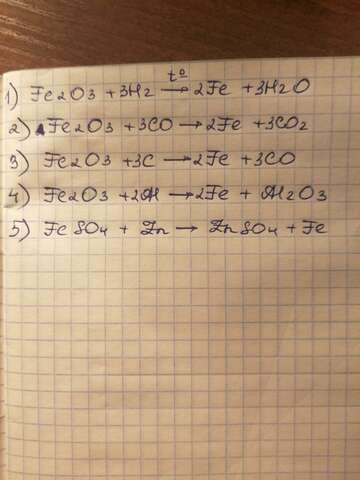 1) Fe2O3 + 3H2 t° → 2Fe + 3H2O
2) Fe2O3 + 3CO → 2Fe + 3CO2
3) Fe2O3 + 3C → 2Fe + 3CO
4) Fe2O3 + 2Al → 2Fe + Al2O3
5) FeSO4 + Zn → ZnSO4 + Fe